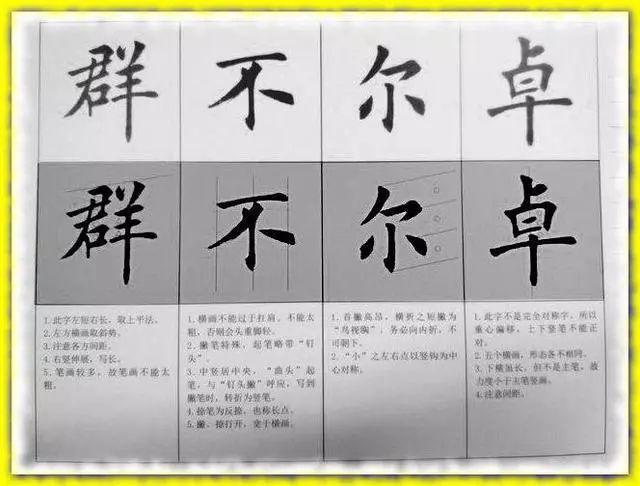 群 不 尔 卓
群 不 尔 卓
1.此字左短右长，取上平法。
2.左方横画取斜势。
3.注意各方间距。
4.右竖伸展，写长。
5.笔画较多，故笔画不能太
粗。
1.横画不能过于扛肩。不能太
粗，否则会头重脚轻。
2.撇笔特殊，起笔略带“钉
头”。
3.中竖居中央，“曲头”起
笔，与“钉头撇”呼应，写到
撇笔时，转折为竖笔。
4.捺笔为反捺，也称长点。
5.撇、捺打开，宽于横画。
1.首撇高昂，横折之短撇为
“鸟视胸”，务必向内折，不
可朝下。
2.“小”之左右点以竖钩为中
心对称。
1.此字不是完全对称字，所以
重心偏移，上下竖笔不能正
对。
2.五个横画，形态各不相同。
3.下横虽长，但不是主笔，故
力度小于主笔竖画。
4.注意间距。